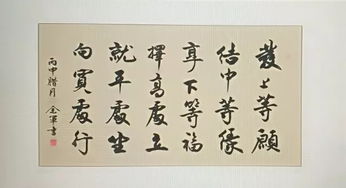 發上等願
结中等緣
享下等福
擇高處立
就平處坐
向寬處行
丙申腊月
軍書